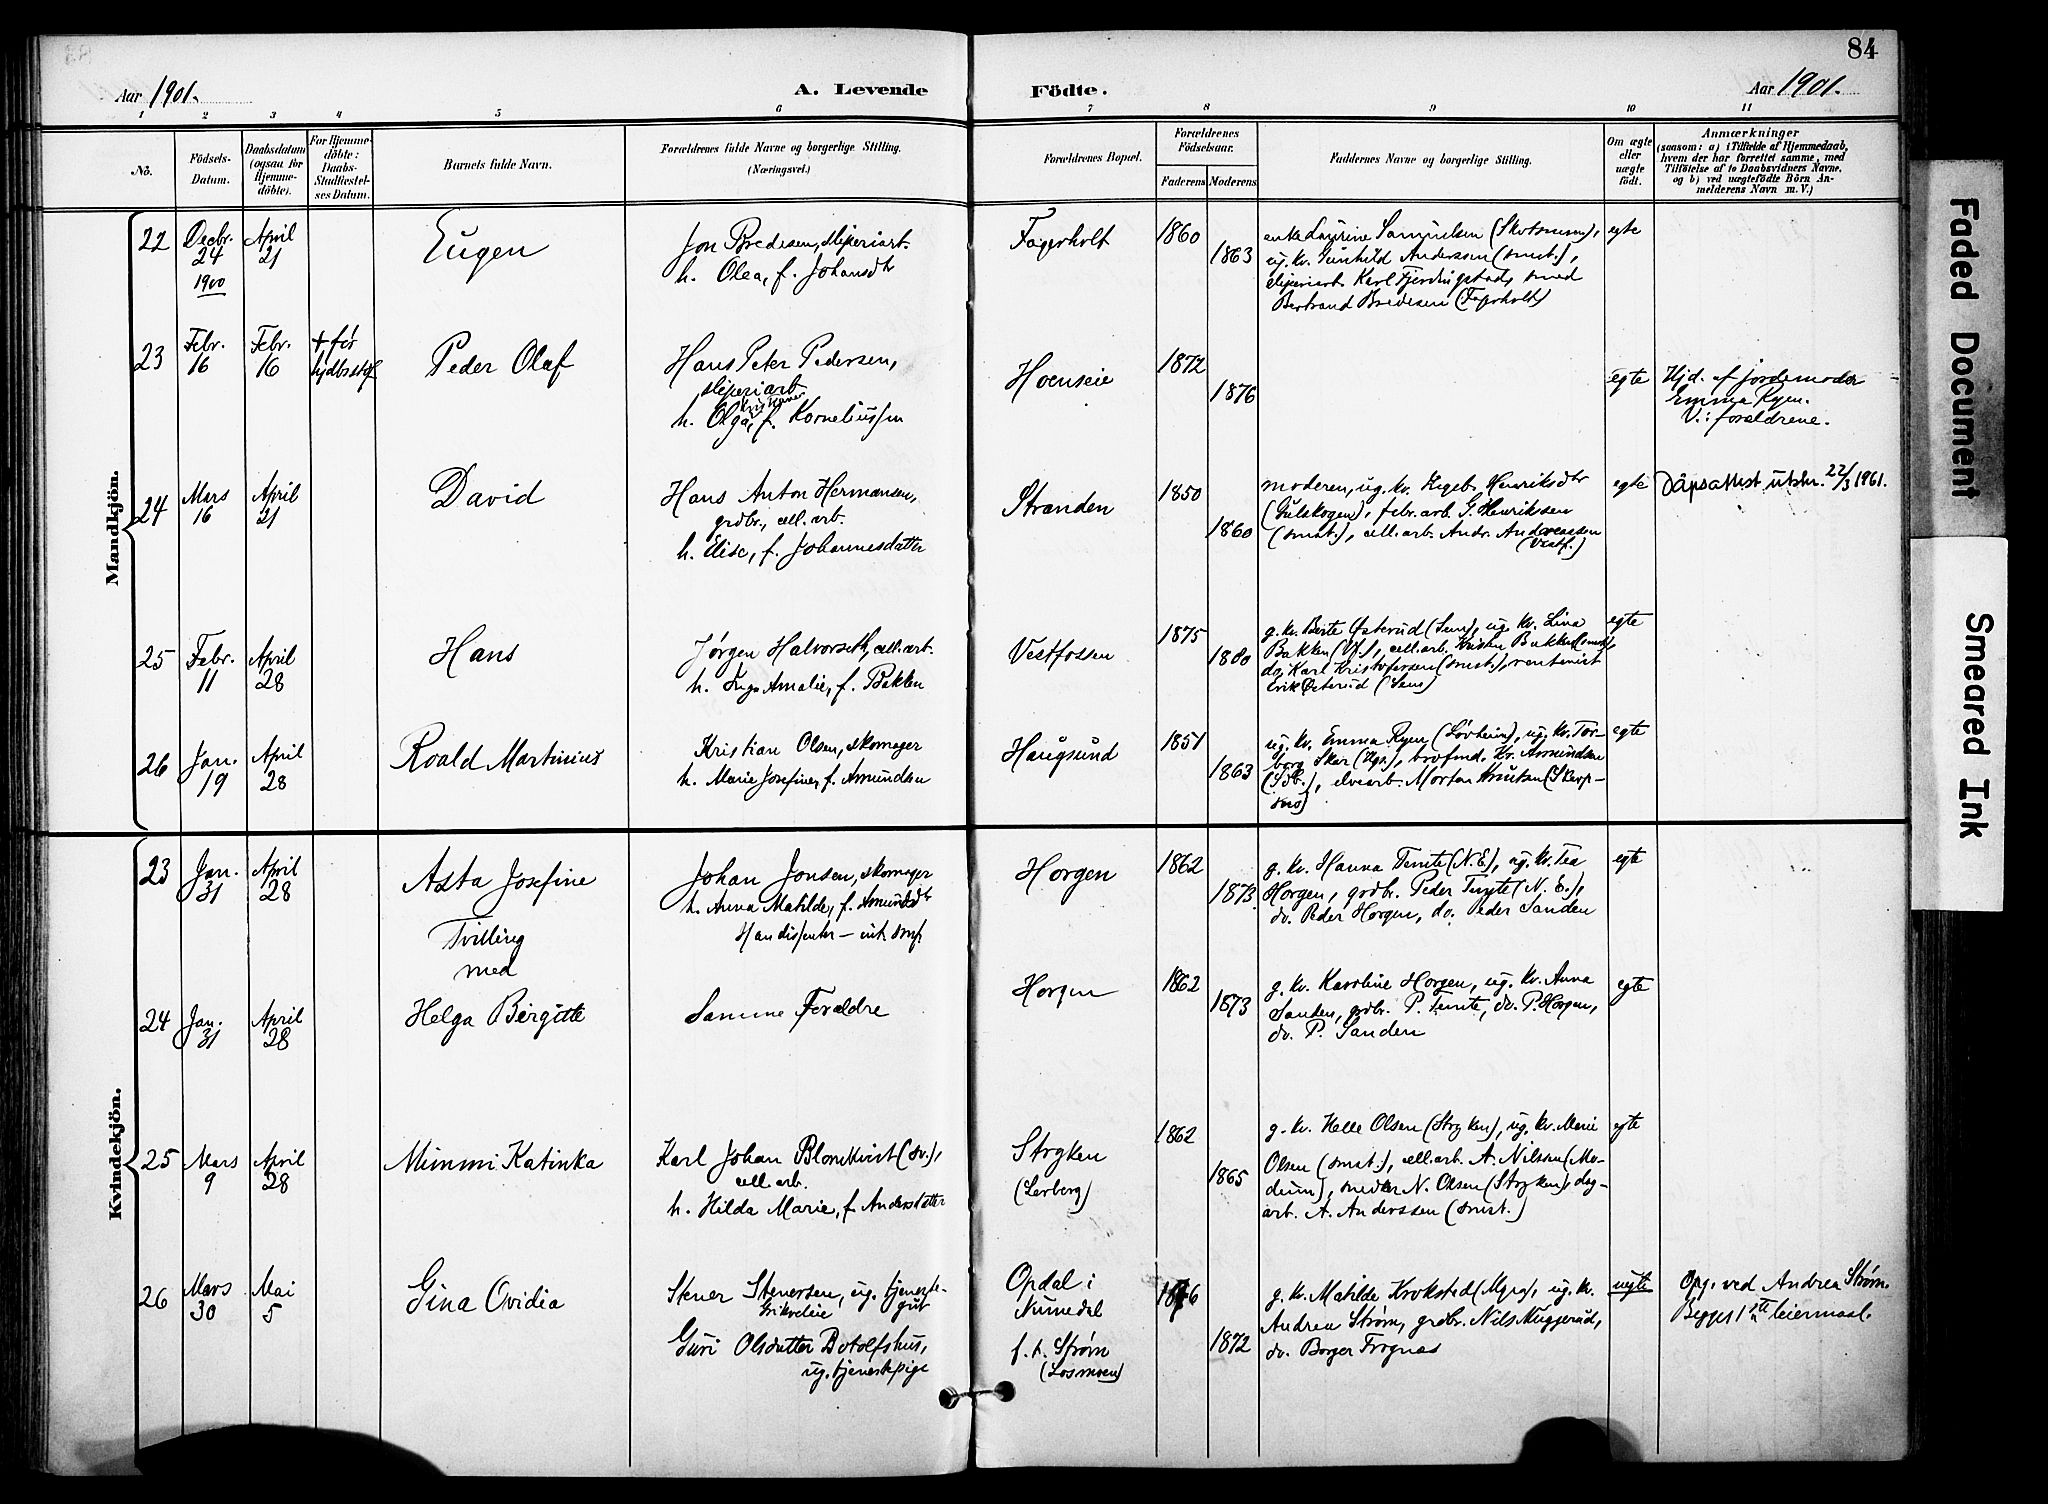 84
Aar 1901.
A. Levende Födte.
Aar 1901.
1 2 3 4 5 6 7 8 9 10 11
No.
Födsels-Datum.
Daabsdatum (ogsaa for Hjemme-döbte).
For Hjemme-döbte: Daabs-Stadfæstel-ses Datum.
Barnets fulde Navn.
Forældrenes fulde Navne og borgerlige Stilling.
(Næringsvei.)
Forældrenes Bopæl.
Forældrenes Födselsaar.
Faderens
Moderens
Faddernes Navne og borgerlige Stilling.
Om ægte eller uægte födt.
Anmærkninger
(saasom: a) i Tilfælde af Hjemmedaab,
hvem der har forrettet samme, med
Tilföielse af to Daabsvidners Navne,
og b) ved uægtefödte Börn An-
melderens Navn m. V.)
Mandkjön.
22 Decbr. 24 1900 April 21 Eugen
Jon Bredesen, sliperiarb.
h. Olea, f. Johansdtr
Fagerholt 1860 1863
enke Laurine Samuelsen (Skotsmoen),
ug. kv. Gunhild Andersen (smst.),
sliperiarb. Karl Fjerdingstad, smed
Bertrand Bredesen (Fagerholt)
egte
23 Febr. 16 Febr. 16 + før Peder Olaf
Hans Peter Pedersen,
sliperiarb
h. Olga, f. Korneliussen
Hoenseie 1872 1876
egte
Hjd. af jordemoder
Emma Ryen.
V.: forældrene.
24 Mars 16 April 21 David
Hans Anton Hermansen,
grdbr., cell. arb.
h. Elise, f. Johannesdatter
Stranden 1850 1860
moderen, ug. kv. Ingeb. Henriksdtr
(Gulskogen), febr. arb. G. Henriksen
(smst.), cell. arb. Andr. Andreassen
(Vestf.)
egte
Dåpsattest utskr. 22/3 1961.
25 Febr. 11 April 28 Hans
Jørgen Halvorseth, cell. arb.
h. Inga Amalie, f. Bakken
Vestfossen 1875 1880
g. kv. Berte Østerud (Sem), ug. kv. Lina
Bakken (Vf.), cell. arb. Kristen Bakken (smst),
do Karl Kristofersen (smst.), rentenist
Erik Østerud (Sem)
egte
26 Jan. 19 April 28 Roald Martinius
Kristian Olsen, skomager
h. Marie Josefine, f. Amundsen
Haugsund 1851 1863
ug. kv. Emma Ryen (Løvheim), ug. kv. Tor-
borg Skar (Hgs.), brofmd. Kr. Amundsen
elvearb. Morten Knutsen (Skarp-
egte
Kvindekjön.
23 Jan. 31 April 28 Asta Josefine
Tvilling
med
Johan Jonsen, skomager
h. Anna Matilde, f. Amundsdtr
Horgen 1862 1873
g. kv. Hanna Temte (N. E.), ug. kv. Tea
Horgen, grdbr. Peder Temte (N. E.),
do. Peder Horgen, do. Peder Sanden
egte
24 Jan. 31 April 28 Helga Birgitte
Samme Forældre
Horgen 1862 1873
g. kv. Karoline Horgen, ug. kv. Anna
Sanden, grdbr. P. Temte, do. P. Horgen,
do. P. Sanden
egte
25 Mars 9 April 28 Mimmi Katinka
Karl Johan Blomkvist (sv.),
cell. arb.
h. Hilda Marie, f. Andersdatter
Stryken
(Lerberg)
1862 1865
g. kv. Helle Olsen (Stryken), ug. kv. Marie
Olsen (smst.), cell. arb. A. Nilsen (Mo-
dum), snedker N. Olsen (Stryken), dag-
arb. A. Anderssen (smst.)
egte
26 Mars 30 Mai 5 Gina Ovidia
Stener Stenersen, ug. tjeneste-
gut
Guri Olsdatter Botolfshus,
ug. tjenestepige
Opdal i
Numedal
f. t. Strøm
(Losmoen)
1876 1872
g. kv. Matilde Krokstad (Myra), ug. kv.
Andrea Strøm, grdbr. Nils Muggerud,
do. Borger Frognæs
uegte
Opg. ved Andrea Strøm.
Begges 1ste leiermaal.
Faded Document
Smeared Ink